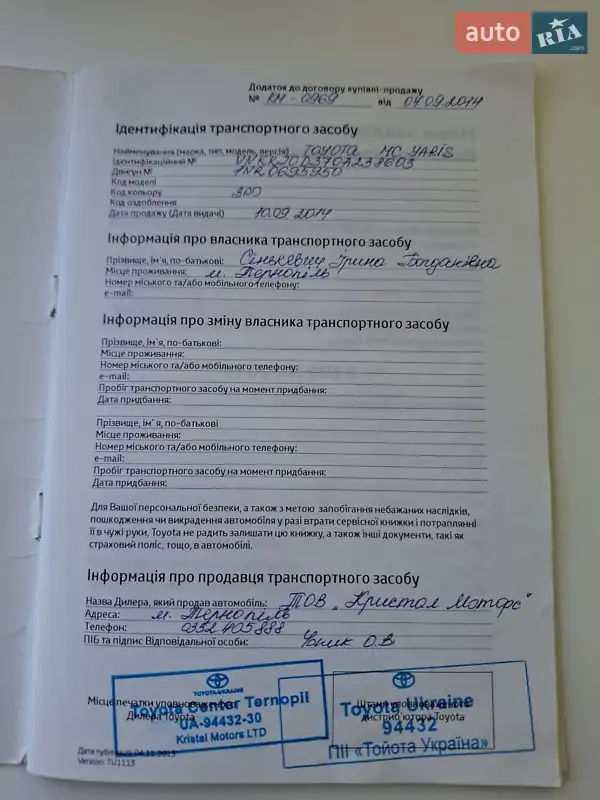 auto RIA .com
Додаток до договору купівлі-продажу
№ КМ-0969 від 04.09.2014
Ідентифікація транспортного засобу
Найменування (марка, тип, модель, версія) TOYOTA MC YARIS
Ідентифікаційний №
Двигун № 1NR0695950
Код моделі
Код кольору 3P0
Код оздоблення
Дата продажу (Дата видачі) 10.09.2014
Інформація про власника транспортного засобу
Прізвище, ім'я, по-батькові: Ірина Богданівна
Місце проживання: м. Тернопіль
Номер міського та/або мобільного телефону:
e-mail:
Інформація про зміну власника транспортного засобу
Прізвище, ім'я, по-батькові:
Місце проживання:
Номер міського та/або мобільного телефону:
e-mail:
Пробіг транспортного засобу на момент придбання:
Дата придбання:
Прізвище, ім'я, по-батькові
Місце проживання:
Номер міського та/або мобільного телефону:
e-mail:
Пробіг транспортного засобу на момент придбання:
Дата придбання:
Для Вашої персональної безпеки, а також з метою запобігання небажаних наслідків,
пошкодження чи викрадення автомобіля у разі втрати сервісної книжки і потраплянні
її в чужі руки, Toyota не радить залишати цю книжку, а також інші документи, такі як
страховий поліс, тощо, в автомобілі.
Інформація про продавця транспортного засобу
Назва Дилера, який продав автомобіль: ТОВ „Кристал Моторс"
Адреса: м. Тернопіль
Телефон: 0352 405888
ПІБ та підпис Відповідальної особи: О.В
TOYOTA-UKRAINE
Місце печатки уповноваженого
Дилера Toyota
Toyota Center Ternopil
UA-94432-30
Kristal Motors LTD
Штамп уповноваженого
дистриб'ютора Toyota
Toyota Ukraine
94432
ПІІ «Тойота Україна»
Дата публікації: 04.11.2013
Version: TU1113